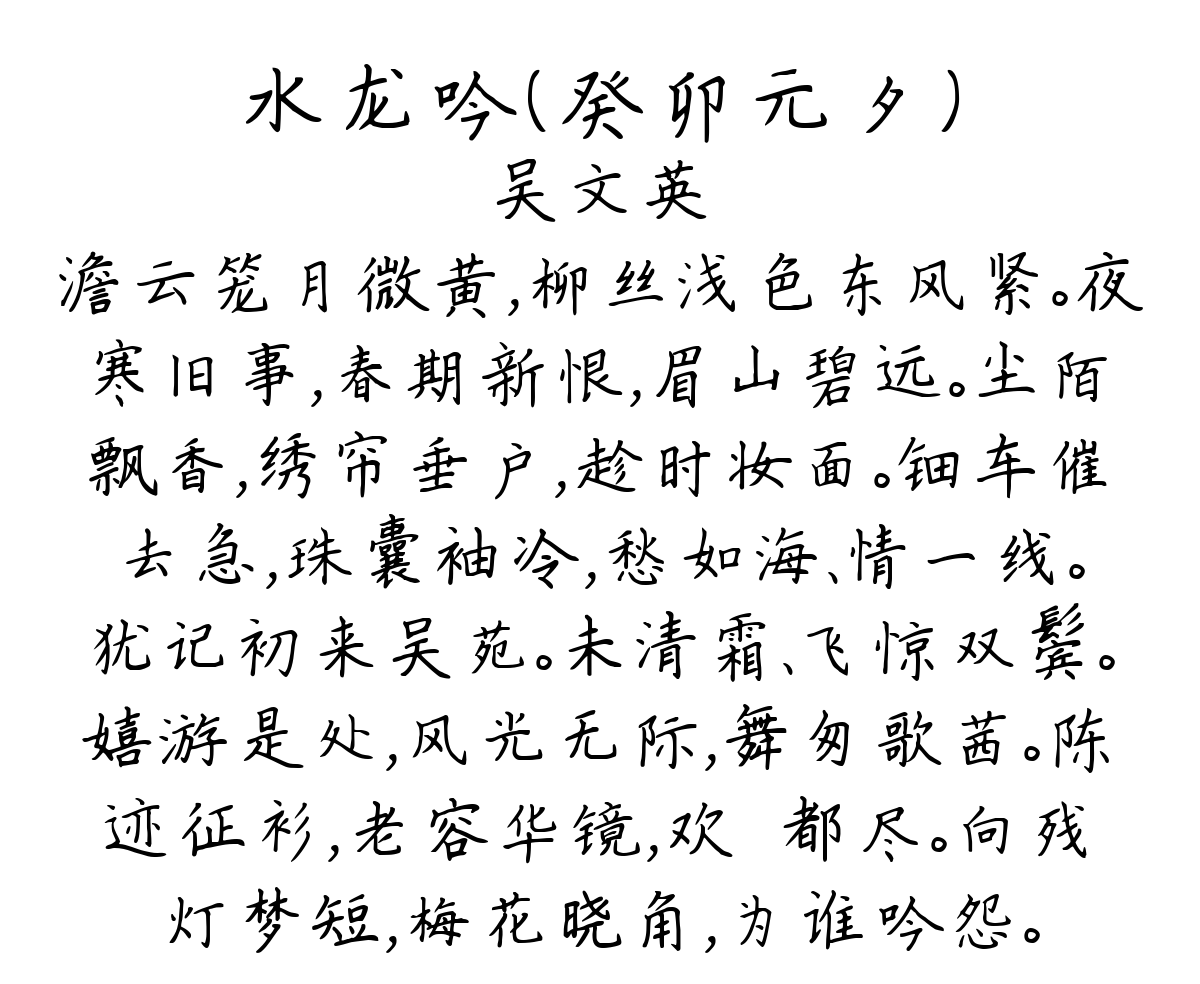 水龙吟(癸卯元夕)
吴文英
澹云笼月微黄,柳丝浅色东风紧。夜
寒旧事,春期新恨,眉山碧远。尘陌
飘香,绣帘垂户,趁时妆面。钿车催
去急,珠囊袖冷,愁如海、情一线。
犹记初来吴苑。未清霜、飞惊双鬓。
嬉游是处,风光无际,舞匆歌茜。陈
迹征衫,老容华镜,欢 都尽。向残
灯梦短,梅花晓角,为谁吟怨。